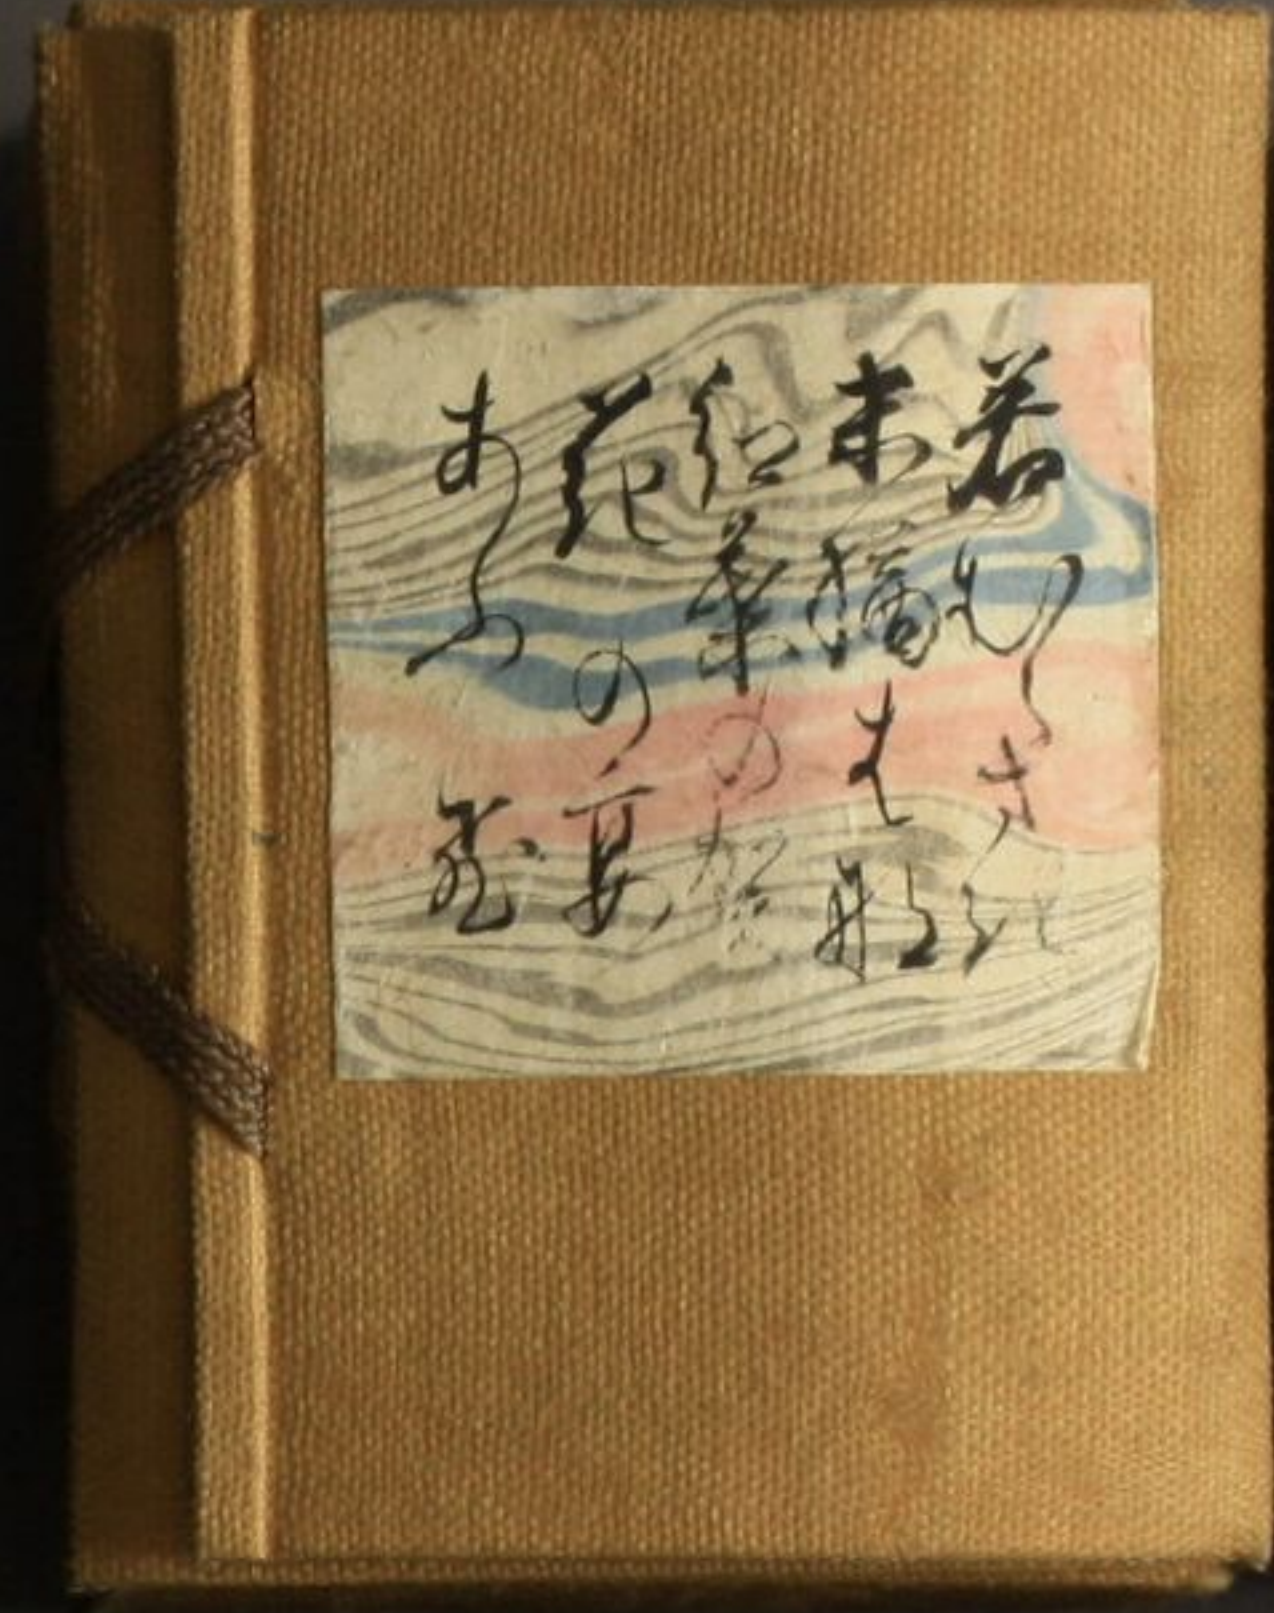 若むらさき
末摘はな
紅葉の賀
花の宴
あふひ